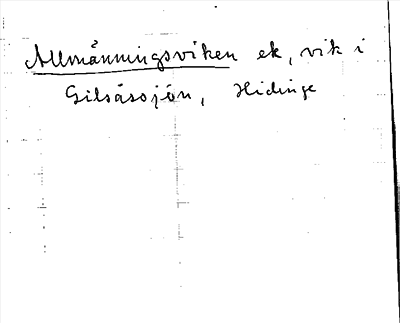 Allmänningsviken ek, vik i
Gilsåsjön, Hidinge